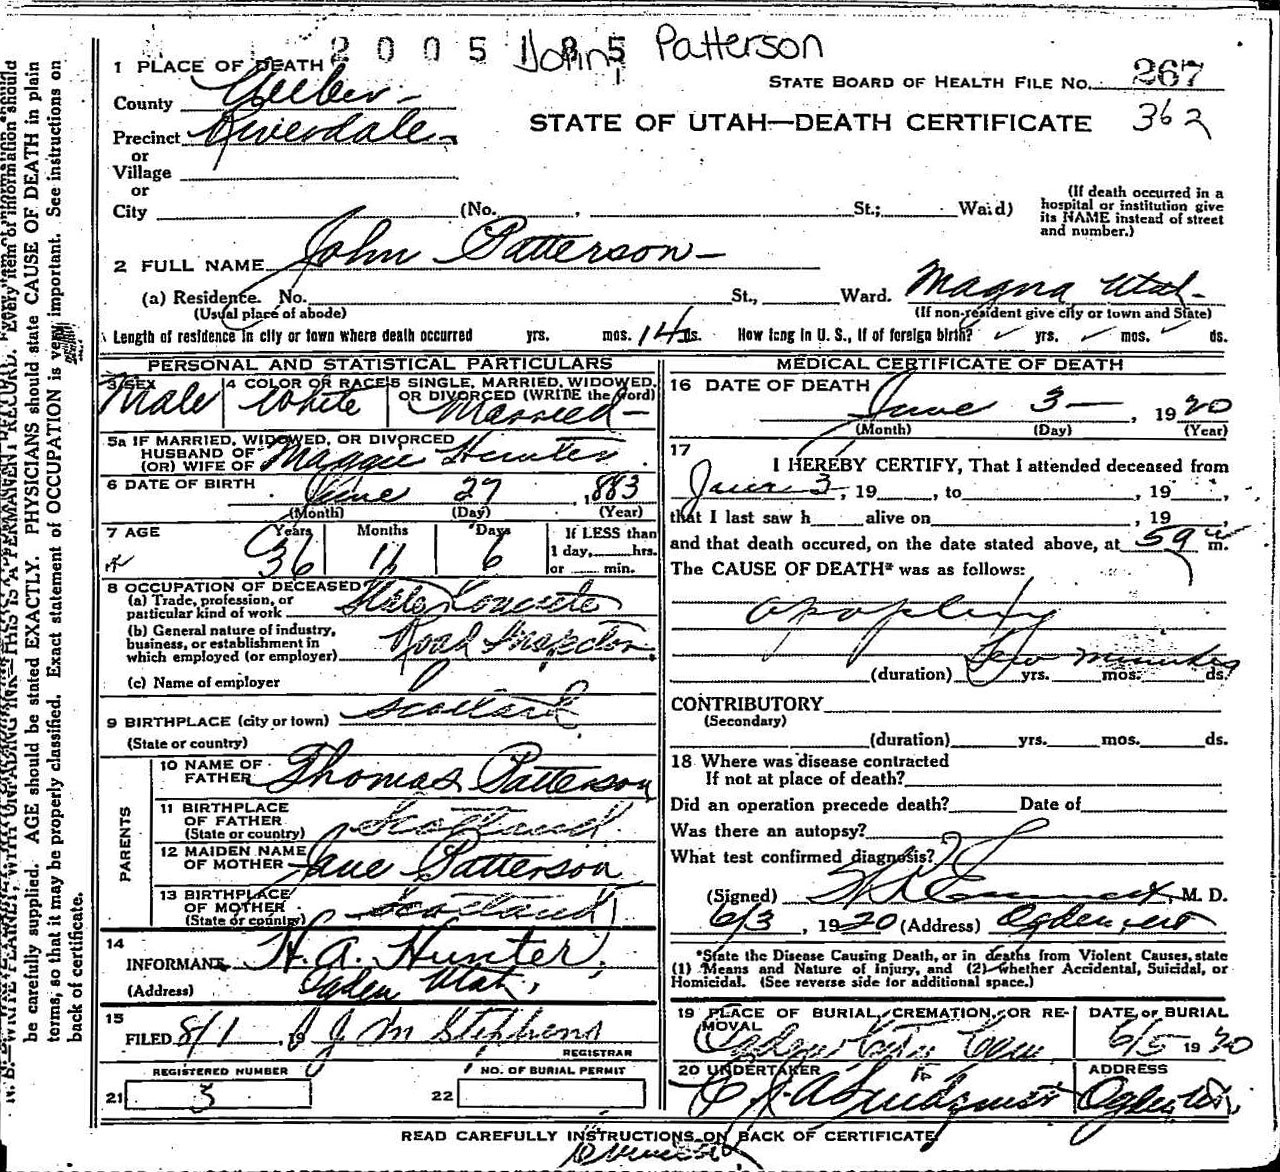 2005185 John Patterson
1 PLACE OF DEATH
STATE BOARD OF HEALTH FILE NO. 267
County Weber
362
Precinct Riverdale
STATE OF UTAH—DEATH CERTIFICATE
or
Village
or
City (No. , St.; Ward)
(If death occurred in a
hospital or institution give
its NAME instead of street
and number.)
2 FULL NAME John Patterson
(a) Residence. No. St., Ward. Magna Utah
(Usual place of abode) (If non-resident give city or town and State)
Length of residence in city or town where death occurred yrs. mos. 14 ds. How long in U. S., if of foreign birth? yrs. mos. ds.
PERSONAL AND STATISTICAL PARTICULARS
3 SEX 4 COLOR OR RACE 5 SINGLE, MARRIED, WIDOWED,
OR DIVORCED (WRITE the word)
Male White Married
5a IF MARRIED, WIDOWED, OR DIVORCED
HUSBAND OF
(OR) WIFE OF Maggie Hunter
6 DATE OF BIRTH June 27 , 1883
(Month) (Day) (Year)
7 AGE Years Months Days If LESS than
36 11 6 1 day, hrs.
or min.
8 OCCUPATION OF DECEASED
(a) Trade, profession, or
particular kind of work State Concrete
(b) General nature of industry,
business, or establishment in
which employed (or employer) Road Inspector
(c) Name of employer
9 BIRTHPLACE (city or town) Scotland
(State or country)
PARENTS
10 NAME OF
FATHER Thomas Patterson
11 BIRTHPLACE
OF FATHER
(State or country) Scotland
12 MAIDEN NAME
OF MOTHER Jane Patterson
13 BIRTHPLACE
OF MOTHER
(State or country) Scotland
14
INFORMANT H. A. Hunter
(Address) Ogden Utah.
15
FILED 8/1 J M Stephens
REGISTRAR
REGISTERED NUMBER NO. OF BURIAL PERMIT
21 3 22
MEDICAL CERTIFICATE OF DEATH
16 DATE OF DEATH
June 3 , 1920
(Month) (Day) (Year)
17
I HEREBY CERTIFY, That I attended deceased from
June 3, 19 , to , 19 ,
that I last saw h alive on , 19 ,
and that death occured, on the date stated above, at m.
The CAUSE OF DEATH* was as follows:
apoplexy
(duration) Few minutes yrs. mos. ds.
CONTRIBUTORY
(Secondary)
(duration) yrs. mos. ds.
18 Where was disease contracted
If not at place of death?
Did an operation precede death? Date of
Was there an autopsy?
What test confirmed diagnosis?
(Signed) M. D.
6/3 , 1920 (Address) Ogden
*State the Disease Causing Death, or in deaths from Violent Causes, state
(1) Means and Nature of Injury, and (2) whether Accidental, Suicidal, or
Homicidal. (See reverse side for additional space.)
19 PLACE OF BURIAL, CREMATION, OR RE-
MOVAL
Ogden City Cem
DATE OF BURIAL
6/5 1920
20 UNDERTAKER ADDRESS
Lindquist Ogden Ut.
READ CAREFULLY INSTRUCTIONS ON BACK OF CERTIFICATE
N. B.—WRITE PLAINLY, WITH UNFADING INK—THIS IS A PERMANENT RECORD. Every item of information should
be carefully supplied. AGE should be stated EXACTLY. PHYSICIANS should state CAUSE OF DEATH in plain
terms, so that it may be properly classified. Exact statement of OCCUPATION is very important. See instructions on
back of certificate.